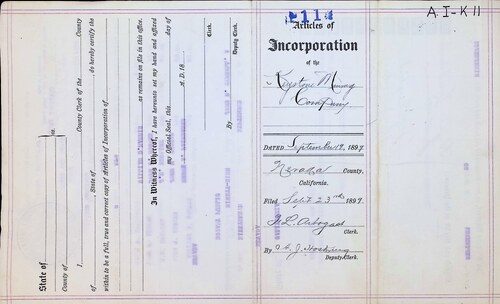 A.I-K 11
11
Articles of
Incorporation
of the
Keystone Mining
Company
DATED September 1897.
Nevada County,
California.
Filed Sept 23rd 1897.
F. L. Arbogast
Clerk.
By J. Hocking
Deputy Clerk.
State of
County of
ss.
I, County Clerk of the County
of , State of , do hereby certify the
within to be a full, true and correct copy of Articles of Incorporation of
as remains on file in this office.
In Witness Whereof, I have hereunto set my hand and affixed
my Official Seal, this day of
A. D. 18
Clerk.
By
Deputy Clerk.